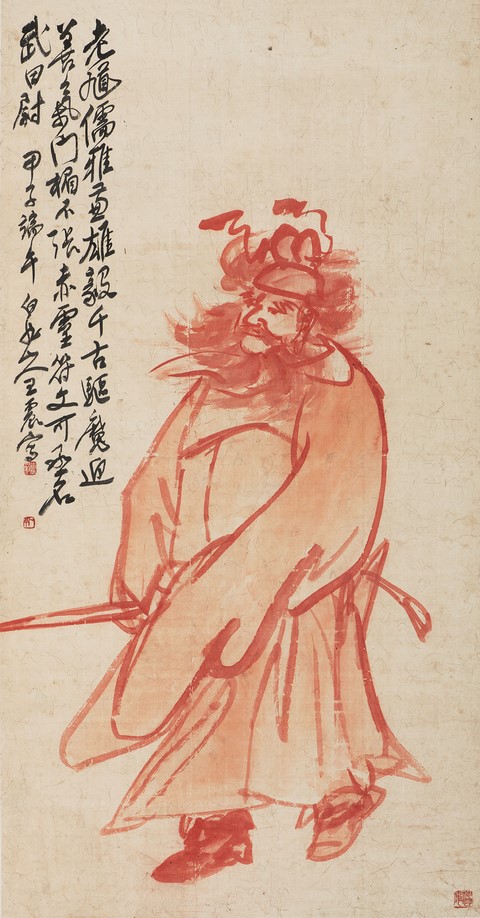 老馗儒雅兼雄毅千古驅魔迴
善氣門楣不張赤靈符文可丞
武曰尉 甲子端午白龍山人王震寫